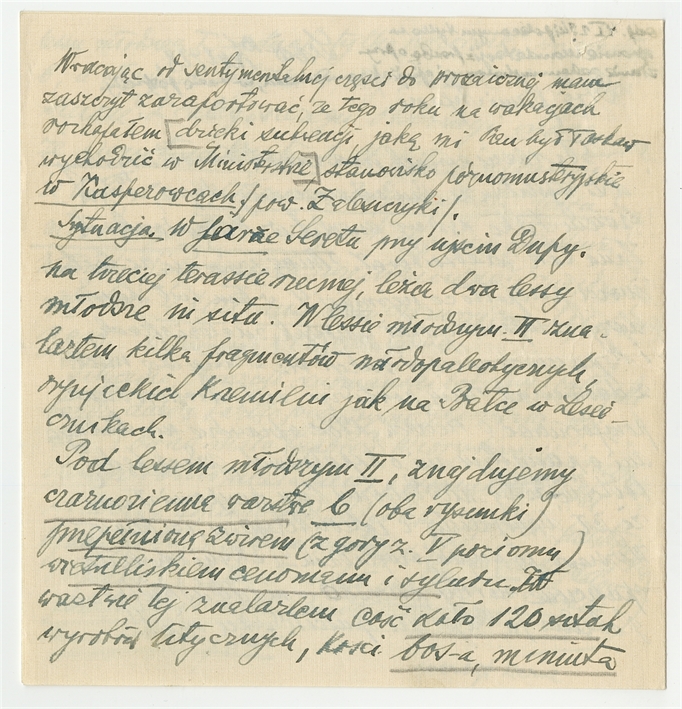 Wracając od sentymentalnej części do prozaicznej mam
zaszczyt zaraportować, że tego roku na wakacjach
rozkopałem [dzięki subwencji, jaką mi Pan był łaskaw
wychodzić w Ministerstwie] stanowisko późnomusteryjskie
w Kasperowcach /pow. Zaleszczyki/.
Sytuacja. W jarze Seretu przy ujściu Dupy.
na trzeciej terassie rzecznej, leżą dwa lessy
młodsze in situ. W lessie młodszym II zna-
lazłem kilka fragmentów
jak na Bałce w Lesie-
cznikach.
Pod lessem młodszym II, znajdujemy
czarnoziemną warstwę b (oba rysunki)
przepełnioną żwirem (z góry z. V poziomu)
cenomanu i syluru. W
warstwie tej znalazłem coś koło 120 sztuk
wyrobów litycznych, kości bos-a,